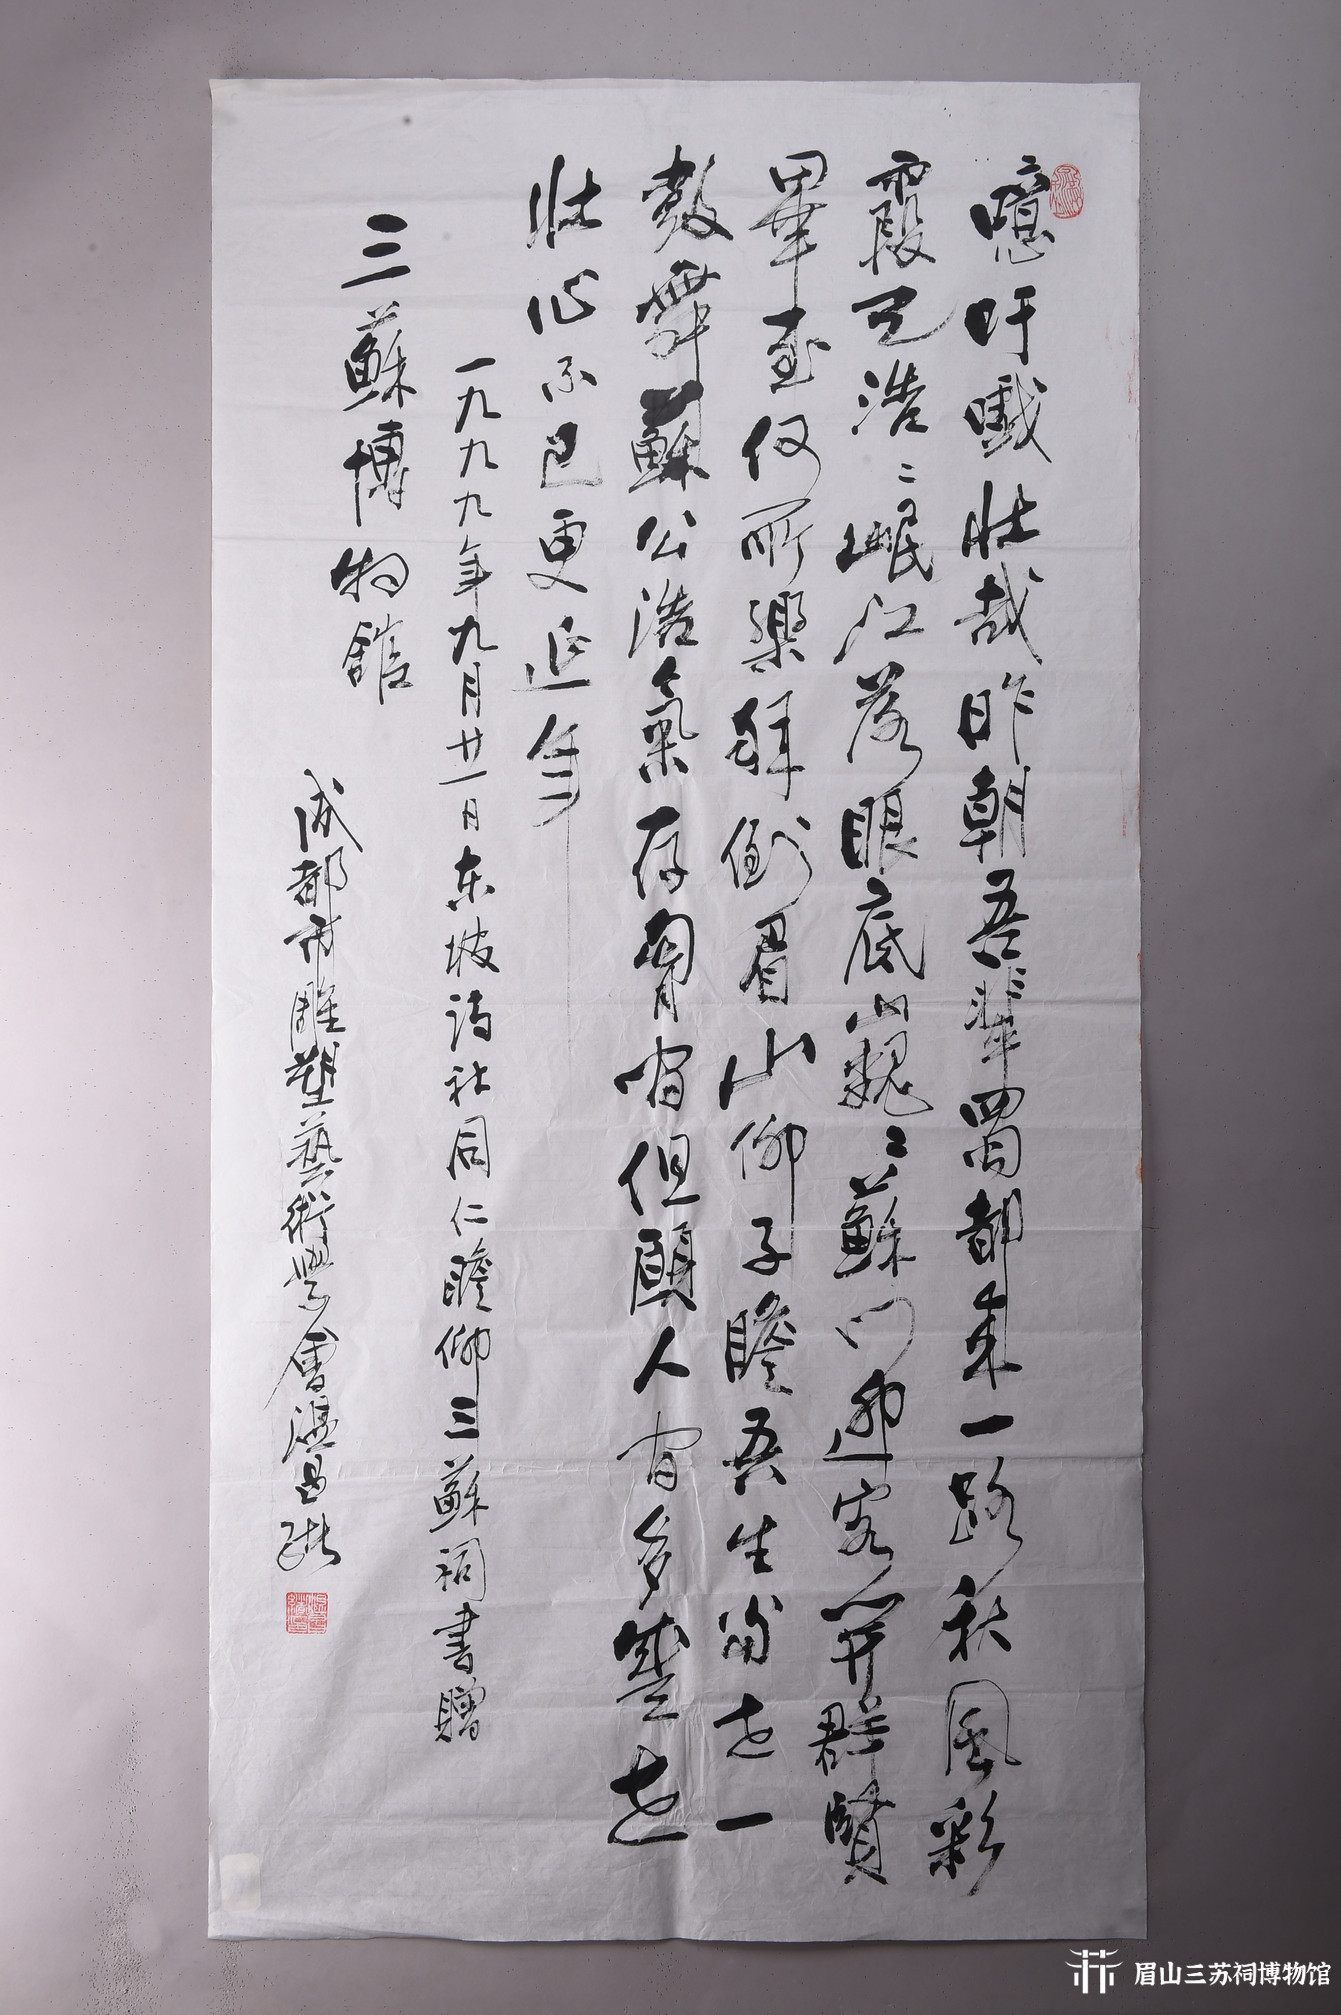 噫吁戲壯哉昨朝吾輩蜀都来一路秋風彩
霞飞浩浩岷江落眼底山巍巍蘇门迎客開群賢
畢至仅所樂拜倒眉山仰子瞻吾生当去一
鼓舞蘇公浩氣存胷有但願人有多壯志
壯心不已更延年
一九九九年九月廿一日东坡诗社同仁瞻仰三蘇祠書贈
三蘇博物館
成都市雕塑藝術學會温昌
眉山三苏祠博物馆